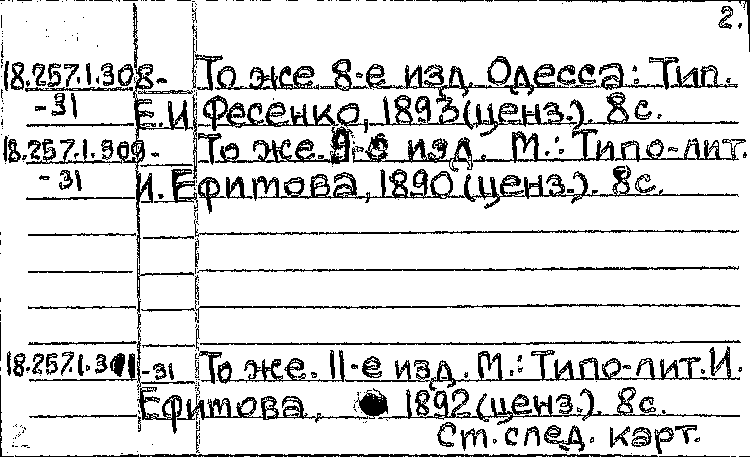 2.
18.257.1.308- То же. 8-е изд. Одесса: Тип.
-31 Е.И. Фесенко, 1893 (ценз.). 8 с.
18.257.1.309- То же. 9-е изд. М.: Типо-лит.
-31 И. Ефитова, 1890 (ценз.). 8 с.
18.257.1.311-31 То же. 11-е изд. М.: Типо-лит. И.
Ефитова, 1892 (ценз.). 8 с.
2 Ст. след. карт.